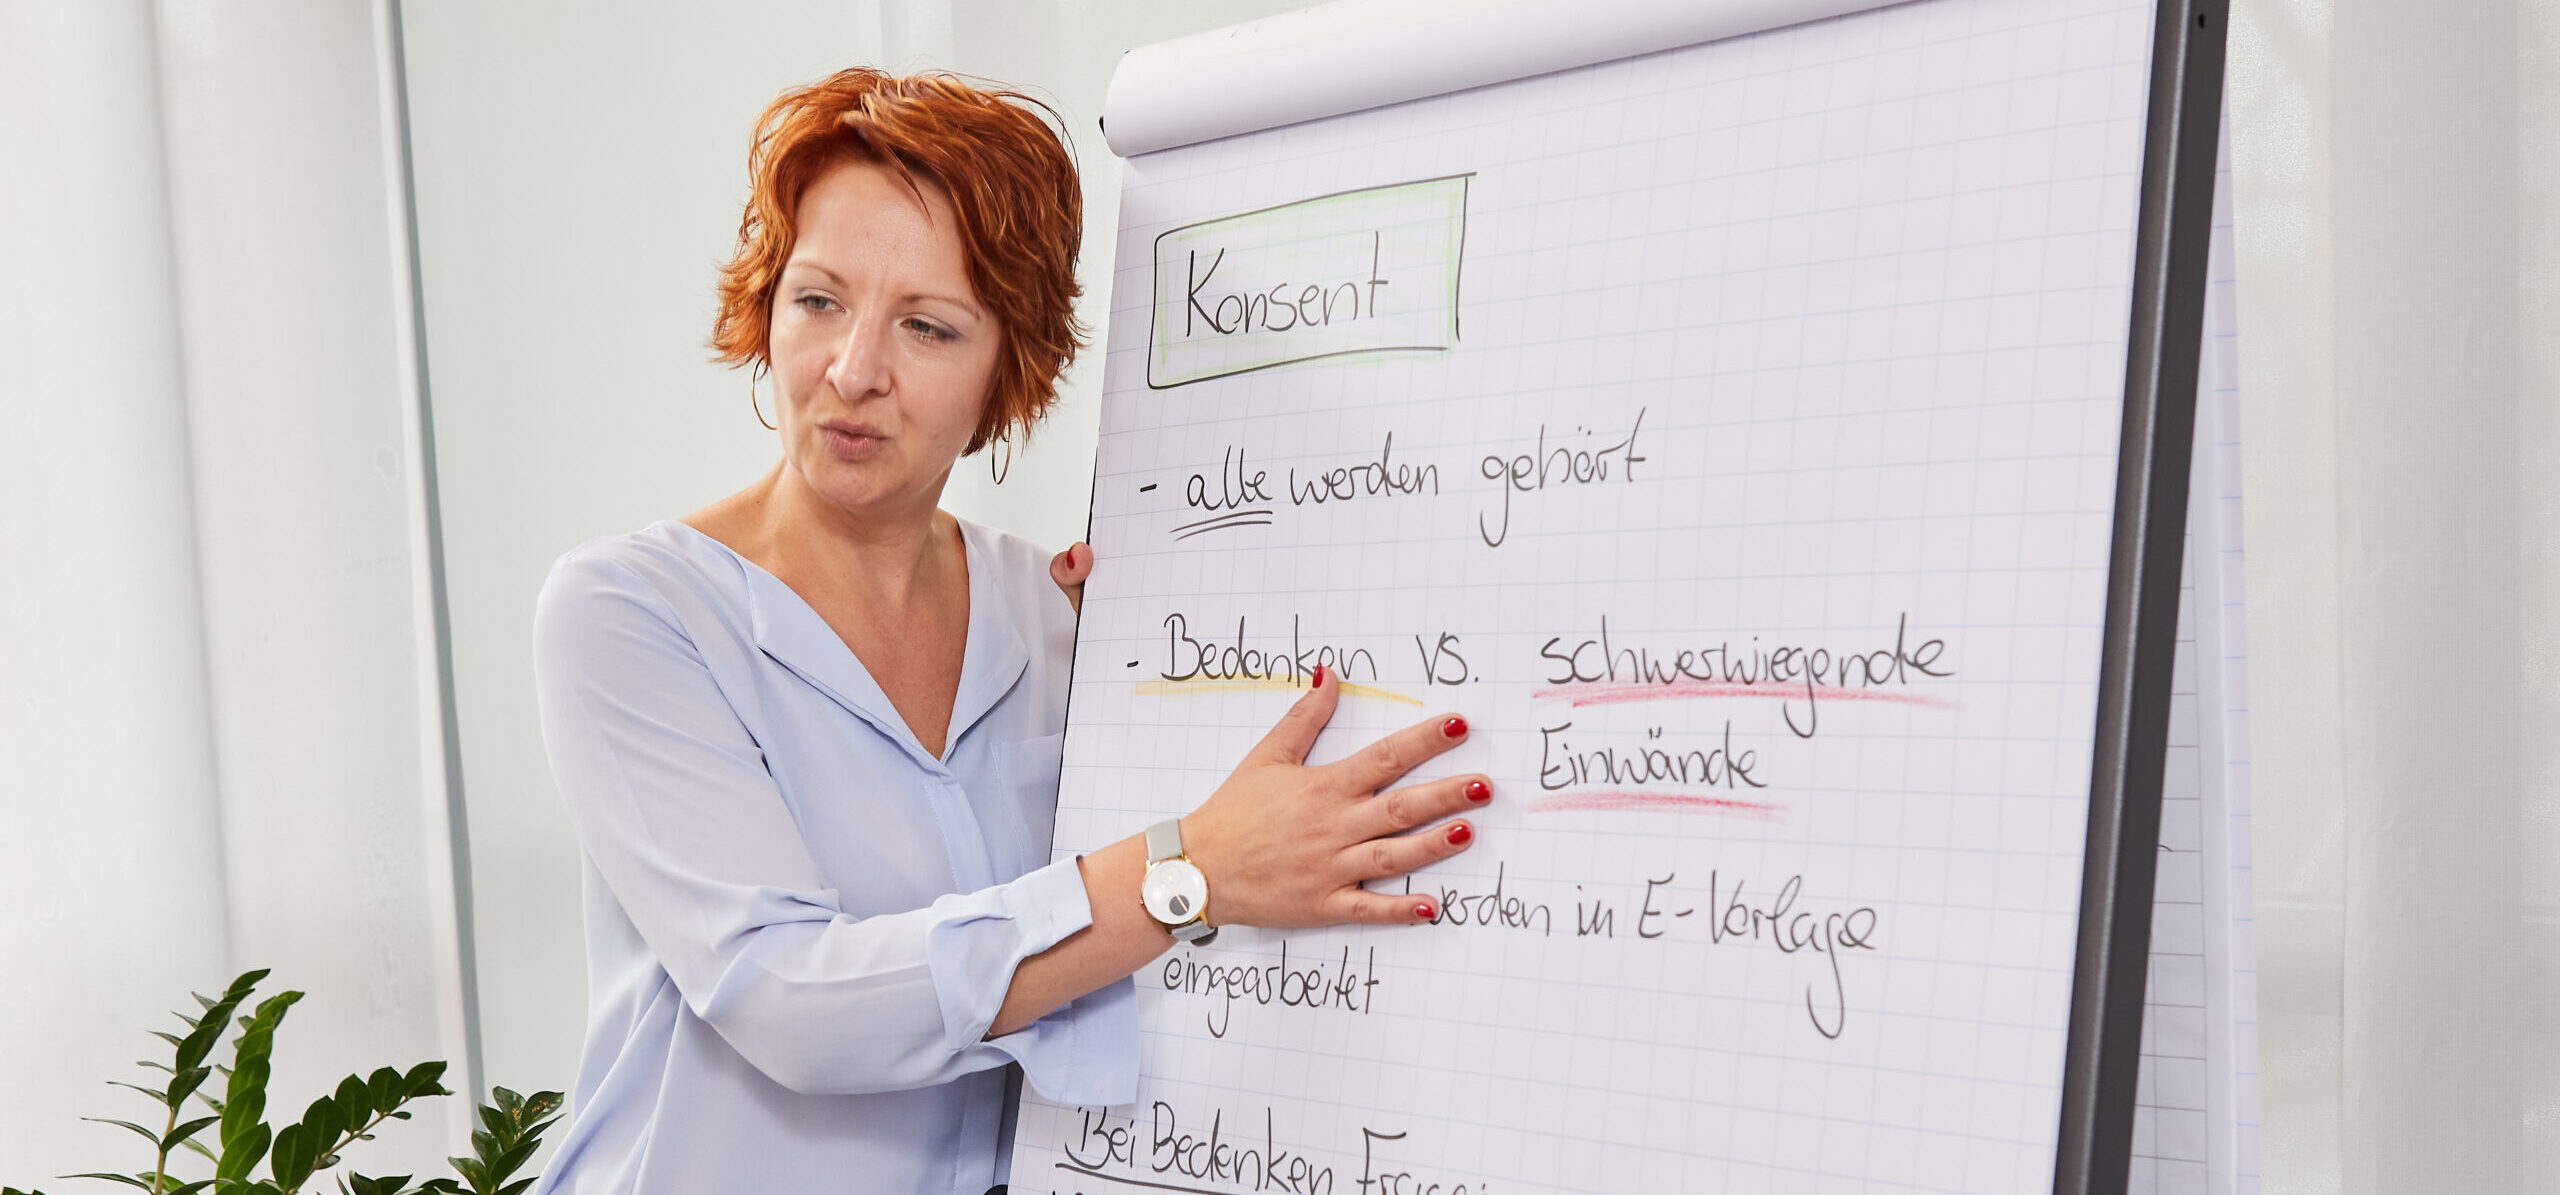 Konsent
- alle werden gehört
- Bedenken vs. schwerwiegende
Einwände
werden in E-Vorlage
eingearbeitet
Bei Bedenken